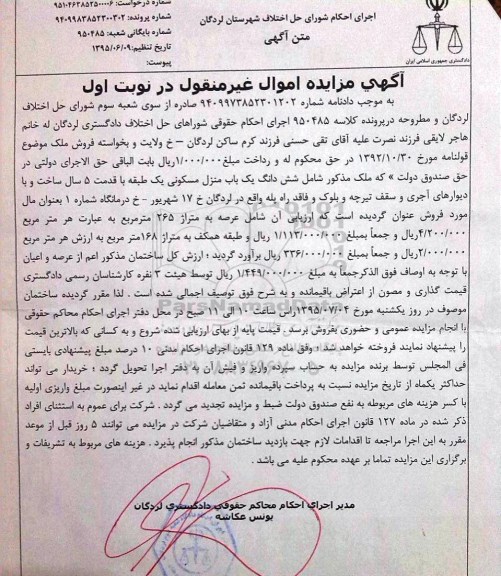 شماره درخواست: ۹۵۱۰۴۶۳۸۵۲۵۰۰۰۰۶
شماره پرونده: ۹۴۰۹۹۸۳۸۵۲۳۰۰۳۰۲
شماره بایگانی شعبه: ۹۵۰۴۸۵
تاریخ تنظیم: ۱۳۹۵/۰۶/۰۹
پیوست:
اجرای احکام شورای حل اختلاف شهرستان لردگان
متن آگهی
دادگستری جمهوری اسلامی ایران
آگهي مزايده اموال غيرمنقول در نوبت اول
به موجب دادنامه شماره ۹۴۰۹۹۷۳۸۵۲۳۰۱۲۰۲ صادره از سوی شعبه سوم شورای حل اختلاف
لردگان و مطروحه درپرونده کلاسه ۹۵۰۴۸۵ اجرای احکام حقوقی شوراهای حل اختلاف دادگستری لردگان له خانم
هاجر لایقی فرزند نصرت علیه آقای تقی حسنی فرزند کرم ساکن لردگان – خ ولایت و بخواسته فروش ملک موضوع
قولنامه مورخ ۱۳۹۲/۱۰/۳۰ در حق محکوم له و رداخت مبلغ ۱/۰۰۰/۰۰۰ریال بابت الباقی حق الاجرای دولتی در
حق صندوق دولت » که ملک مذکور شامل شش دانگ یک باب منزل مسکونی یک طبقه با قدمت ۵ سال ساخت و با
دیوارهای آجری و سقف تیرچه و بلوک و فاقد راه پله واقع در لردگان خ ۱۷ شهریور – خ درمانگاه شماره ۱ بعنوان مال
مورد فروش عنوان گردیده است که ارزیابی آن شامل عرصه به متراژ ۲۶۵ مترمربع به عبارت هر متر مربع
۴/۲۰۰/۰۰۰ریال و جمعاً بمبلغ ۱/۱۱۳/۰۰۰/۰۰۰ ریال و طبقه همکف به متراژ ۱۶۸متر مربع به ارزش هر متر مربع
۲/۰۰۰/۰۰۰ریال و جمعاً بمبلغ ۳۳۶/۰۰۰/۰۰۰ ریال برآورد گردید ؛ ارزش کل ساختمان مذکور اعم از عرصه و اعیان
با توجه به اوصاف فوق الذکرجمعاً به مبلغ ۱/۴۴۹/۰۰۰/۰۰۰ ریال توسط هیئت ۳ نفره کارشناسان رسمی دادگستری
قیمت گذاری و مصون از اعتراض باقیمانده و به شرح فوق توصیف اجمالی شده است . لذا مقرر گردیده ساختمان
موصوف در روز یکشنبه مورخ ۱۳۹۵/۰۷/۰۴راس ساعت ۱۰ الی ۱۱ صبح در محل دفتر اجرای احکام محاکم حقوقی
با انجام مزایده عمومی و حضوری بفروش برسد . قیمت پایه از بهای ارزیابی شده شروع و به کسانی که بالاترین قیمت
را پیشنهاد نمایند فروخته خواهد شد؛ وفق ماده ۱۲۹ قانون اجرای احکام مدنی ۱۰ درصد مبلغ پیشنهادی بایستی
فی المجلس توسط برنده مزایده به حساب سپرده واریز و فیش آن به دفتر اجرا تحویل گردد ؛ خریدار می تواند
حداکثر یکماه از تاریخ مزایده نسبت به پرداخت باقیمانده ثمن معامله اقدام نماید در غیر اینصورت مبلغ واریزی اولیه
با کسر هزینه های مربوطه به نفع صندوق دولت ضبط و مزایده تجدید می گردد . شرکت برای عموم به استثنای افراد
ذکر شده در ماده ۱۲۷ قانون اجرای احکام مدنی آزاد و متقاضیان شرکت در مزایده می توانند ۵ روز قبل از موعد
مقرر به این اجرا مراجعه تا اقدامات لازم جهت بازدید ساختمان مذکور انجام پذیرد . هزینه های مربوط به تشریفات و
برگزاری این مزایده تماما بر عهده محکوم علیه می باشد .
مدیر اجرای احکام محاکم حقوقی دادگستری لردگان
یونس عکاشه